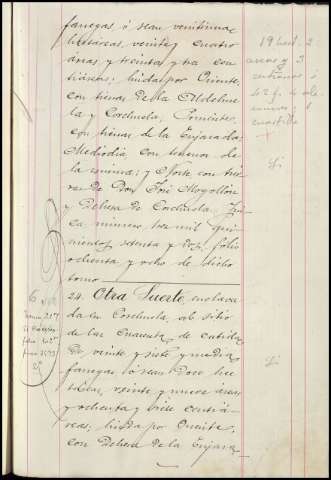 fanegas, ó sean veintiuna
hectáreas, veinte y cuatro
áreas, y treinta y tres cen
tiáreas; linda por Oriente
con tierras de la Aldehue
la y Corchuela; Poniente,
con tierras de la Enjarada;
Mediodia con terrenos de
la misma; y Norte con tier
ras de Don José Mogollón
y Dehesa de Corchuela. Fin
ca número, tres mil qui
nientos setenta y dos, folio
ochenta y ocho de dicho
tomo
24. Otra Suerte, enclava
da en Corchuela, al sitio
de las Cuarenta, de cabida
de veinte y siete y media
fanegas, ó sean doce hec
táreas, veinte y nueve áreas
y ochenta y siete centiá-
reas; linda por Oriente,
con Dehesa de la Enjara-
19 hect. 2
areas y 3
centiareas ó
42 f.
Si
6
Si